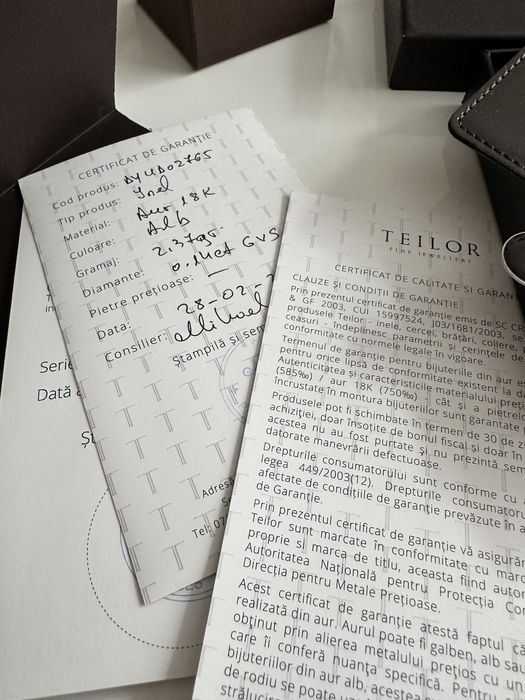 CERTIFICAT DE GARANȚIE
Cod produs: DYUD02765
Tip produs: Inel
Material: Aur 18K
Culoare: Alb
Gramaj: 2.37gr.
Diamante: 0.14ct GVS
Pietre prețioase: —
Data: 28-02-
Consilier:
Ștampilă și sem
Adresă
Tel: 07
Serie
Dată
TEILOR
FINE JEWELLERY
CERTIFICAT DE CALITATE SI GARANT
CLAUZE ȘI CONDIȚII DE GARANȚIE
Prin prezentul certificat de garanție emis de SC CE
& GF 2003, CUI 15997524, J03/16B1/2003, se
produsele Teilor - inele, cercei, brățări, coliere,
ceasuri - îndeplinesc parametrii și cerințele de
conformitate cu normele legale în vigoare.
Termenul de garanție pentru bijuteriile din aur e
pentru orice lipsă de conformitate existent la d
Autenticitatea și caracteristicile materialului preți
(585‰) / aur 18K (750‰) cât și a pietrelo
încrustate în montura bijuteriilor sunt garantate
Produsele pot fi schimbate în termen de 30 de z
achiziției, doar însoțite de bonul fiscal și doar în
acestea nu au fost purtate și nu prezintă sem
datorate manevrării defectuoase.
Drepturile consumatorului sunt conforme cu
legea 449/2003(12). Drepturile consumatoru
afectate de condițiile de garanție prevăzute în a
de Garanție.
Prin prezentul certificat de garanție vă asigurăm
Teilor sunt marcate în conformitate cu marc
proprie si marca de titlu, aceasta fiind autor
Autoritatea Națională pentru Protecția Con
Direcția pentru Metale Prețioase.
Acest certificat de garanție atestă faptul că
realizată din aur. Aurul poate fi galben, alb sau
obținut prin alierea metalului prețios cu un
care îi conferă nuanța specifică. Pentru
bijuteriilor din aur alb, acestea
de rodiu se poate
străluci